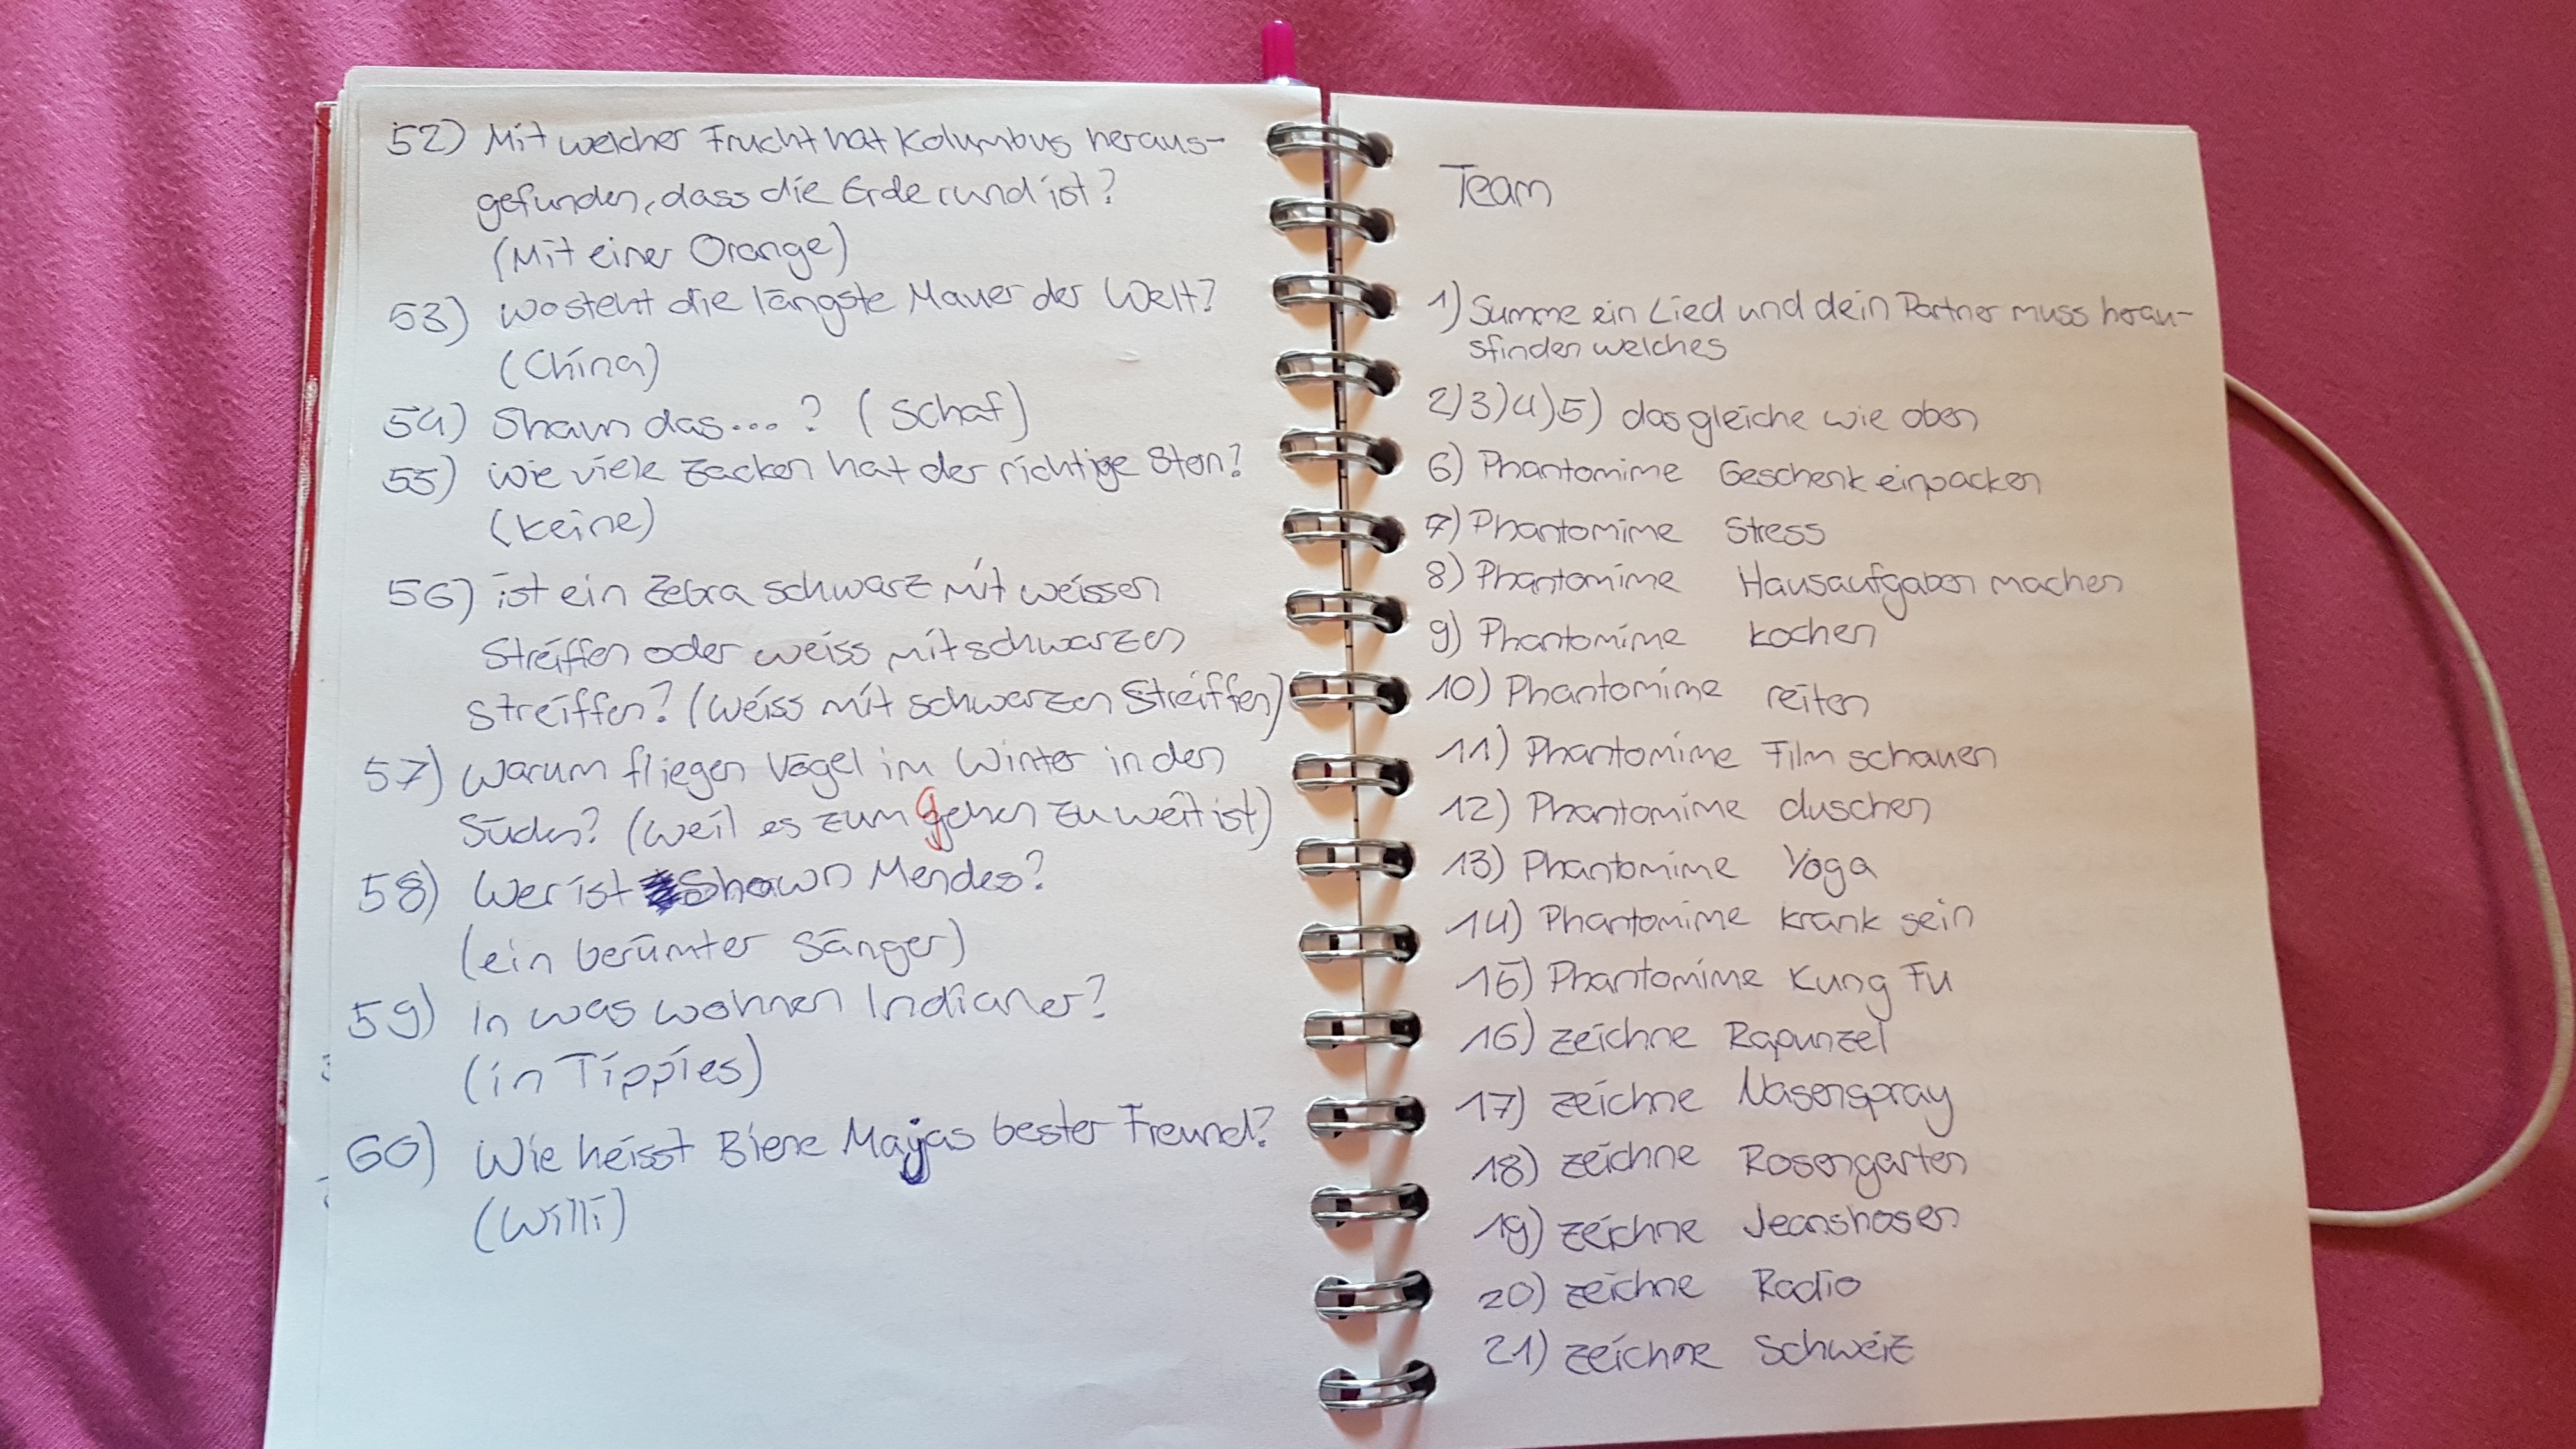 52) Mit welcher Frucht hat Kolumbus heraus-
gefunden, dass die Erde rund ist?
(Mit einer Orange)
53) wo steht die längste Mauer der Welt?
(China)
54) Shaun das...? (Schaf)
55) wie viele Zacken hat der richtige Stern?
(keine)
56) ist ein Zebra schwarz mit weissen
Streiffen oder weiss mit schwarzen
Streiffen? (weiss mit schwarzen Streiffen)
57) Warum fliegen Vögel im Winter in den
Süden? (weil es zum gehen zu weit ist)
58) Wer ist Shawn Mendes?
(ein berümter Sänger)
59) In was wohnen Indianer?
(in Tippies)
60) Wie heisst Biene Majas bester Freund?
(Willi)
Team
1) Summe ein Lied und dein Partner muss herau-
sfinden welches
2)3)4)5) das gleiche wie oben
6) Phantomime Geschenk einpacken
7) Phantomime Stress
8) Phantomime Hausaufgaben machen
9) Phantomime kochen
10) Phantomime reiten
11) Phantomime Film schauen
12) Phantomime duschen
13) Phantomime Yoga
14) Phantomime krank sein
15) Phantomime Kung Fu
16) zeichne Rapunzel
17) zeichne Nasenspray
18) zeichne Rosengarten
19) zeichne Jeanshosen
20) zeichne Radio
21) zeichne Schweiz